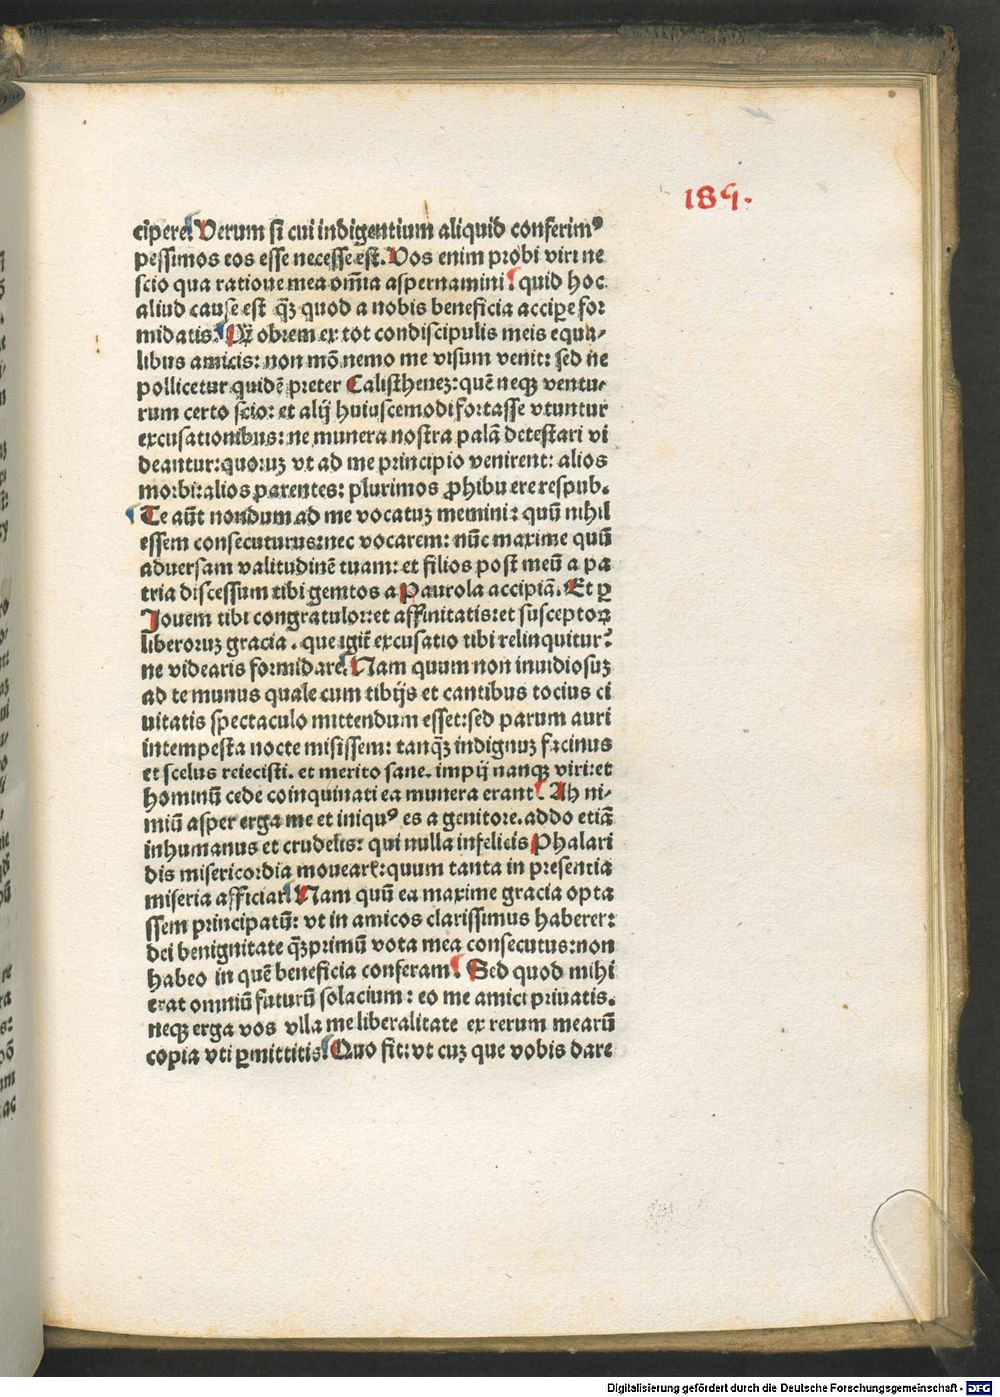 189.
cipere. Verum si cui indigentium aliquid conferimꝰ
pessimos eos esse necesse est. Vos enim probi viri ne
scio qua ratione mea om̄ia aspernamini: quid hoc
aliud cause est qȝ quod a nobis beneficia accipe for
midatis. Qȝ obrem ex tot condiscipulis meis equa-
libus amicis: non mō nemo me visum venit: sed ne
pollicetur quidē preter Calisthenez: quē neqȝ ventu-
rum certo scio: et alij huiuscemodi fortasse vtuntur
excusationibus: ne munera nostra palā detestari vi
deantur: quoruz vt ad me principio venirent: alios
morbi: alios parentes: plurimos ꝓhibuere respub.
Te aūt nondum ad me vocatuz memini: quū nihil
essem consecuturus: nec vocarem: nūc maxime quū
aduersam valitudinē tuam: et filios post meū a pa
tria discessum tibi genitos a Paurola accipiā. Et ꝑ
Jouem tibi congratulor: et affinitatis: et susceptoꝝ
liberoruz gracia. que igit̄ excusatio tibi relinquitur?
ne videaris formidare. Nam quum non inuidiosuz
ad te munus quale cum tibijs et cantibus tocius ci
uitatis spectaculo mittendum esset: sed parum auri
intempesta nocte misissem: tanqȝ indignuz facinus
et scelus reiecisti. et merito sane. impij nanqȝ viri: et
hominū cede coinquinati ea munera erant. Ah ni-
miū asper erga me et iniquꝰ es a genitore. addo etiā
inhumanus et crudelis: qui nulla infelicis Phalari
dis misericordia mouear̄: quum tanta in presentia
miseria afficiar. Nam quū ea maxime gracia opta
ssem principatū: vt in amicos clarissimus haberer:
dei benignitate qȝprimū vota mea consecutus: non
habeo in quē beneficia conferam. Sed quod mihi
erat omniū futurū solacium: eo me amici priuatis.
neqȝ erga vos vlla me liberalitate ex rerum mearū
copia vti ꝑmittitis. Quo fit: vt cuz que vobis dare
Digitalisierung gefördert durch die Deutsche Forschungsgemeinschaft - DFG